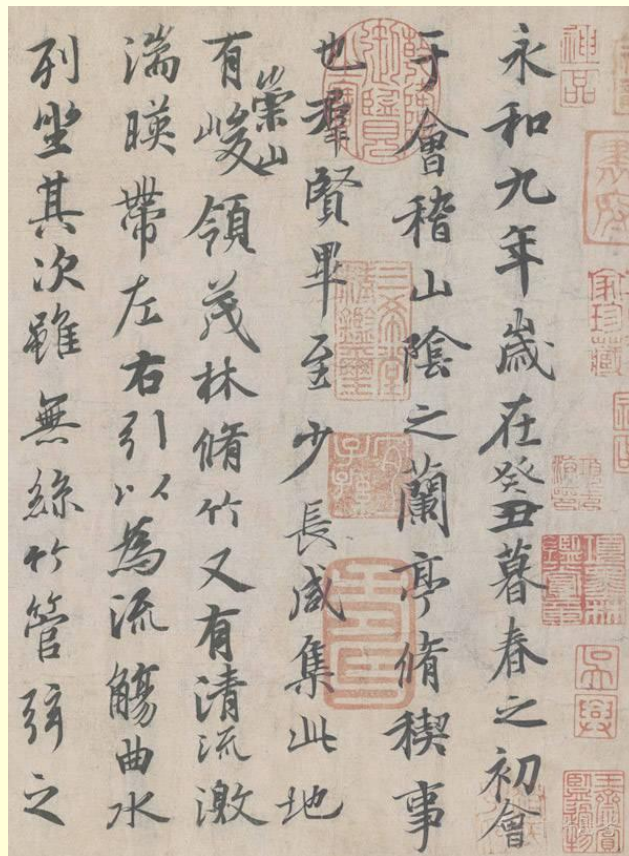 永和九年歲在癸丑暮春之初會
于會稽山陰之蘭亭脩稧事
也羣賢畢至少長咸集此地
有崇山峻領茂林脩竹又有清流激
湍暎帶左右引以為流觴曲水
列坐其次雖無絲竹管弦之
神品
三希堂精鑑璽
宜子孫